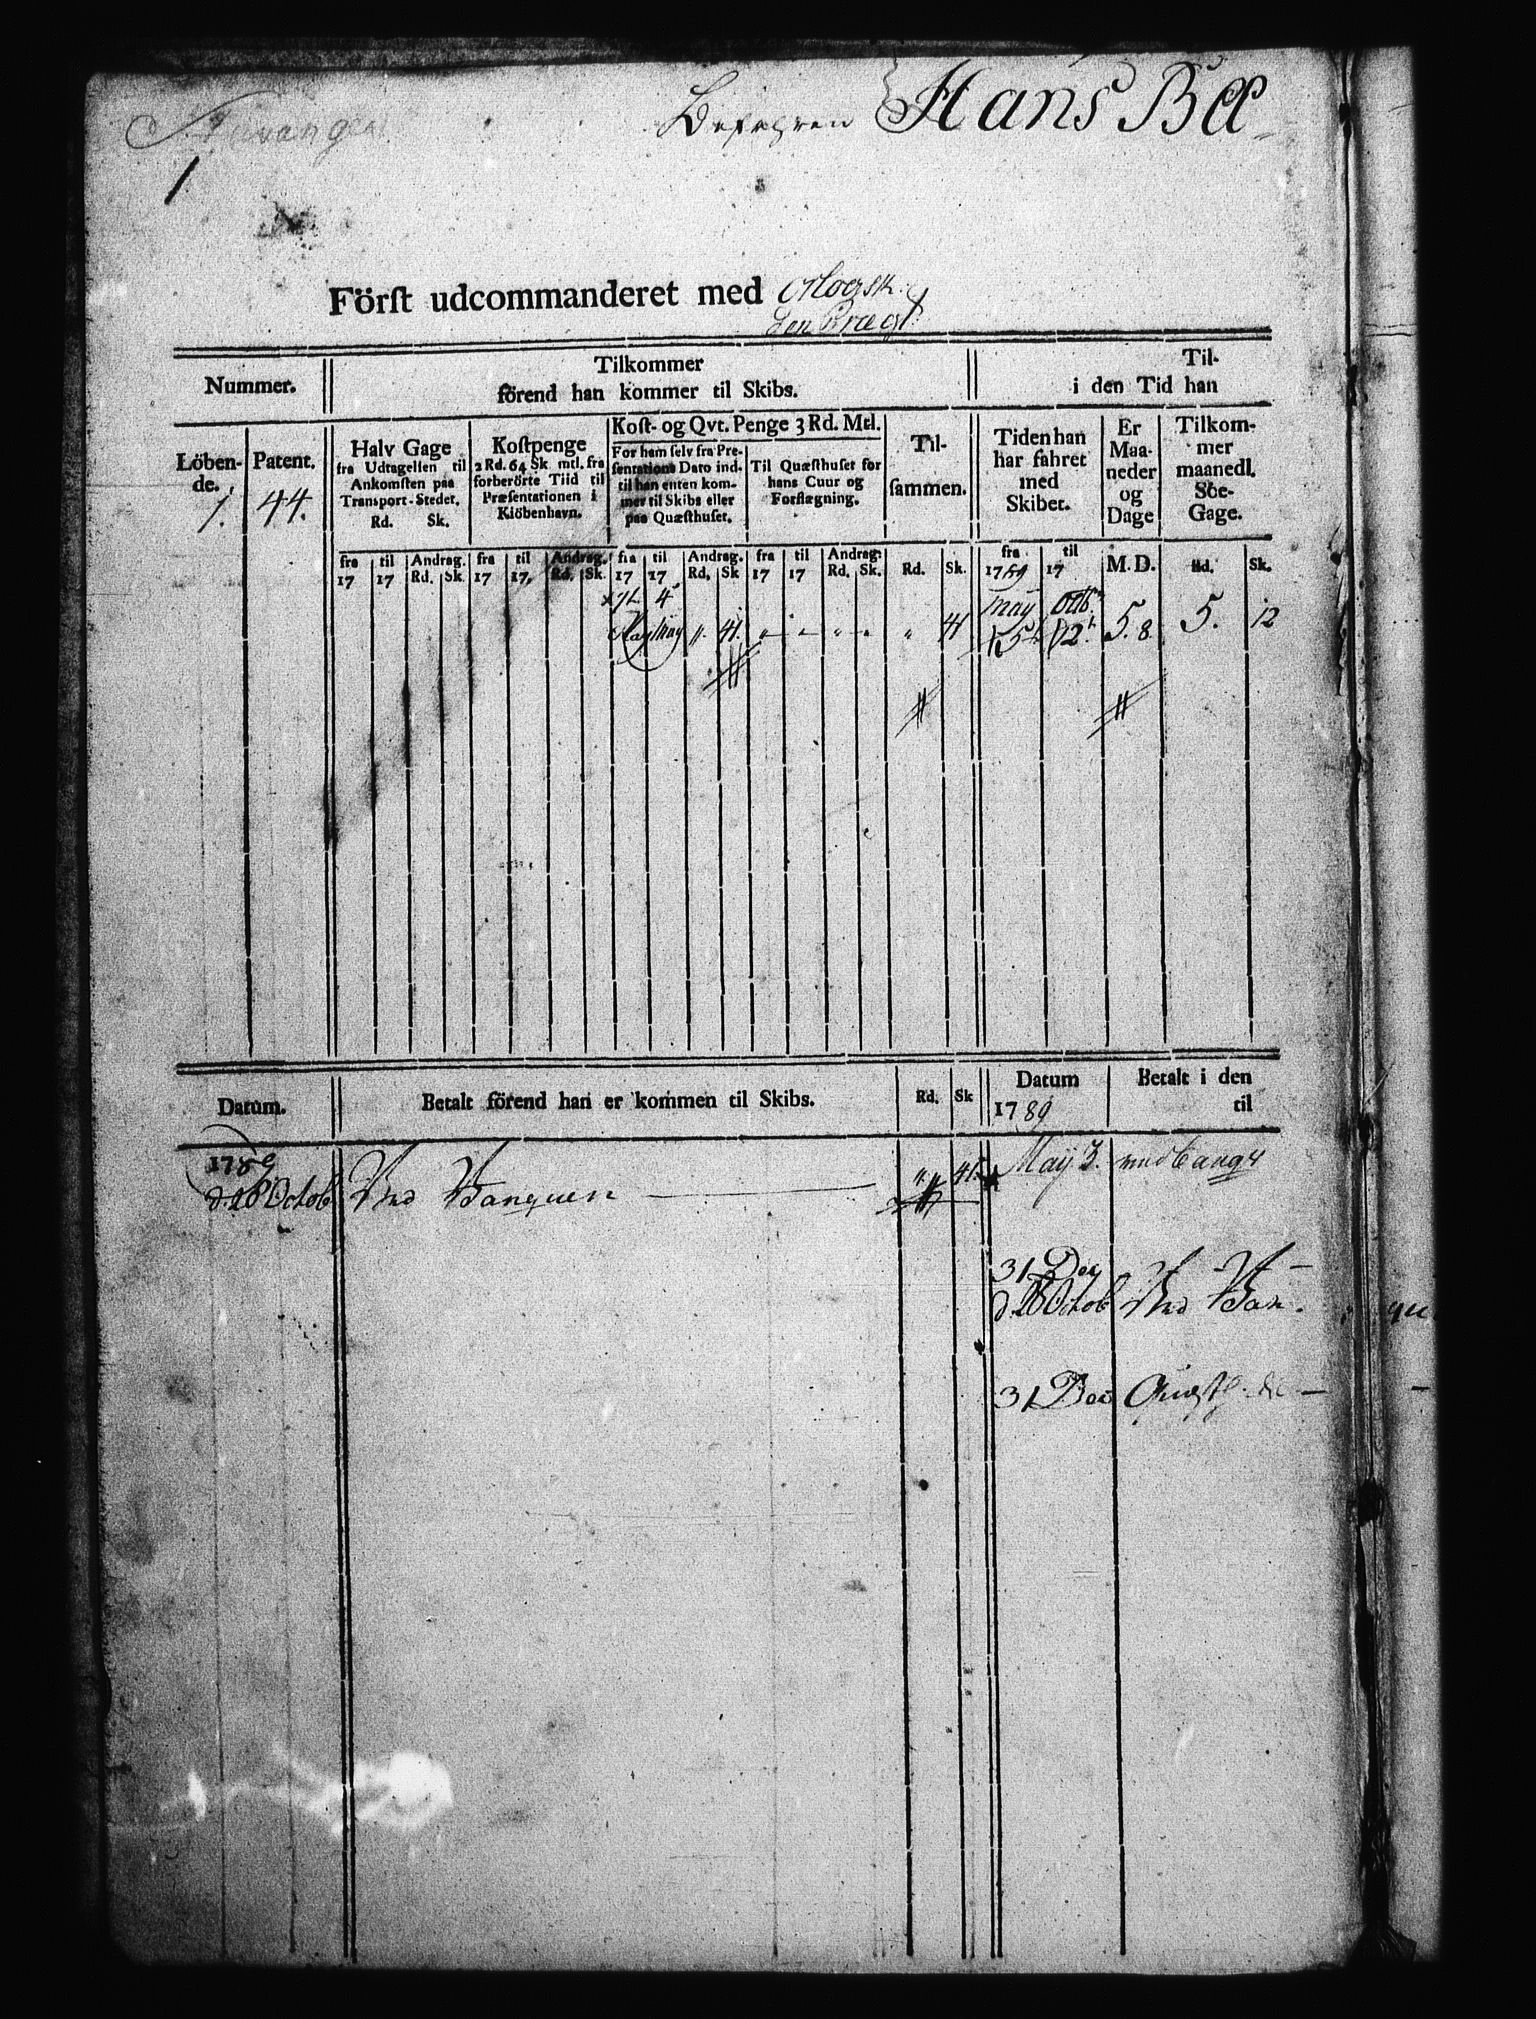 Stavanger Befahren Hans Bæ
1
Först udcommanderet med Orlogsk.
Nummer.
Löben-
de.
1.
Patent.
44.
Tilkommer
förend han kommer til Skibs.
Halv Gage
fra Udtagelſen til
Ankomſten paa
Transport-Stedet.
Rd. Sk.
Koſtpenge
2 Rd. 64 Sk mtl. fra
forberörte Tiid til
Præſentationen i
Kiöbenhavn.
Koſt- og Qvt. Penge 3 Rd. Mtl.
For ham ſelv fra Præ-
ſentations Dato ind-
til han enten kom-
mer til Skibs eller
paa Quæſthuſet.
Til Quæſthuſet for
hans Cuur og
Forſlægning.
Til-
ſammen.
Til-
i den Tid han
Tiden han
har fahret
med
Skibet.
Er
Maa-
neder
og
Dage
Tilkom-
mer
maanedl.
Söe-
Gage.
fra til Andrag. fra til Andrag. fra til Andrag. fra til Andrag. Rd. Sk. fra til M. D. Rd. Sk.
17 17 Rd. Sk. 17 17. Rd. Sk. 17 17 Rd. Sk 17 17 Rd. Sk. 1789 17
4 May Octb.
May May " 41. " " " " " 41 5 12 5. 8 5. 12
Datum. Betalt förend han er kommen til Skibs. Rd. Sk Datum Betalt i den
1789 til
1789 May 3.
d. 28 Octob Ved Banquen " 41.
31 Dec
d. 28 Octob Ved Ban-
31 Dec